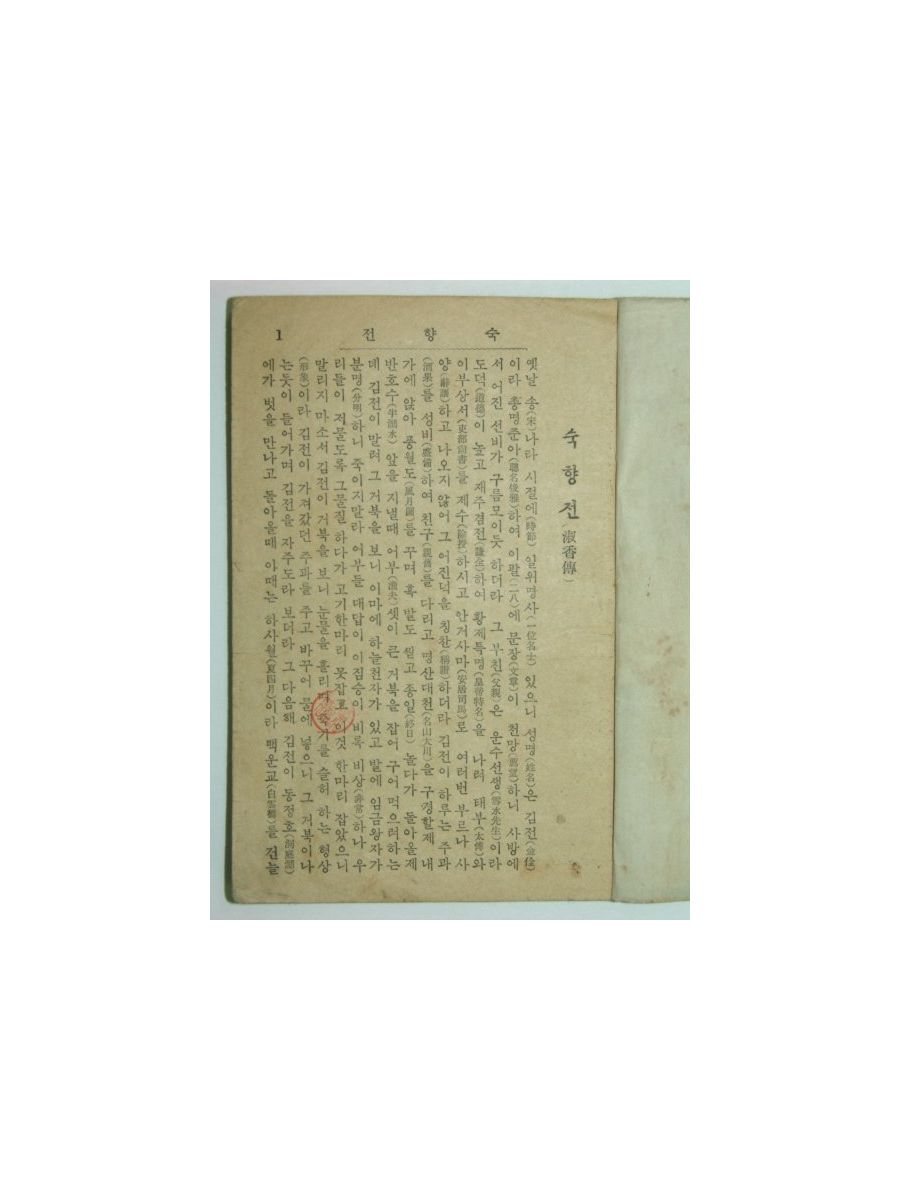 숙향전 1
숙향전(淑香傳)
옛날 송(宋)나라 시절에(時節) 일위명사(一位名士) 있으니 성명(姓名)은 김전(金佺)
이라 총명준아(聰名俊雅)하여 이팔(二八)에 문장(文章)이 천망(薦望)하니 사방에
서 어진 선비가 구름모이듯 하더라 그 부친(父親)은 운수선생(雲水先生)이라
도덕(道德)이 높고 재주겸전(兼全)하여 황제특명(皇帝特名)을 나려 태부(太傅)와
이부상서(吏部尙書)를 제수(除授)하시고 안거사마(安居司馬)로 여러번 부르나 사
양(辭讓)하고 나오지 않어 그 어진덕을 칭찬(稱讚)하더라 김전이 하루는 주과
(酒果)를 성비(盛備)하여 친구(親舊)를 다리고 명산대천(名山大川)을 구경할제 내
가에 앉아 풍월도(風月圖)를 꾸며 혹 발도 씯고 종일(終日) 놀다가 돌아올제
반호수(半湖水) 앞을 지낼때 어부(漁夫) 셋이 큰 거북을 잡어 구어 먹으려하는
데 김전이 말려 그 거북을 보니 이마에 하늘천자가 있고 발에 임금왕자가
분명(分明)하니 죽이지말라 어부들 대답이 이짐승이 비록 비상(非常)하나 우
리들이 저물도록 그물질 하다가 고기한마리 못잡고 이것 한마리 잡았으니
말리지 마소서 김전이 거북을 보니 눈물을 흘리며 죽기를 슬허 하는 형상
(形象)이라 김전이 가져갔던 주과를 주고 바꾸어 물에 넣으니 그 거북이나
는듯이 들어가며 김전을 자주도라 보더라 그 다음해 김전이 동정호(洞庭湖)
에가 벗을 만나고 돌아올떼 아때는 하사월(夏四月)이라 백운교(白雲橋)를 건늘